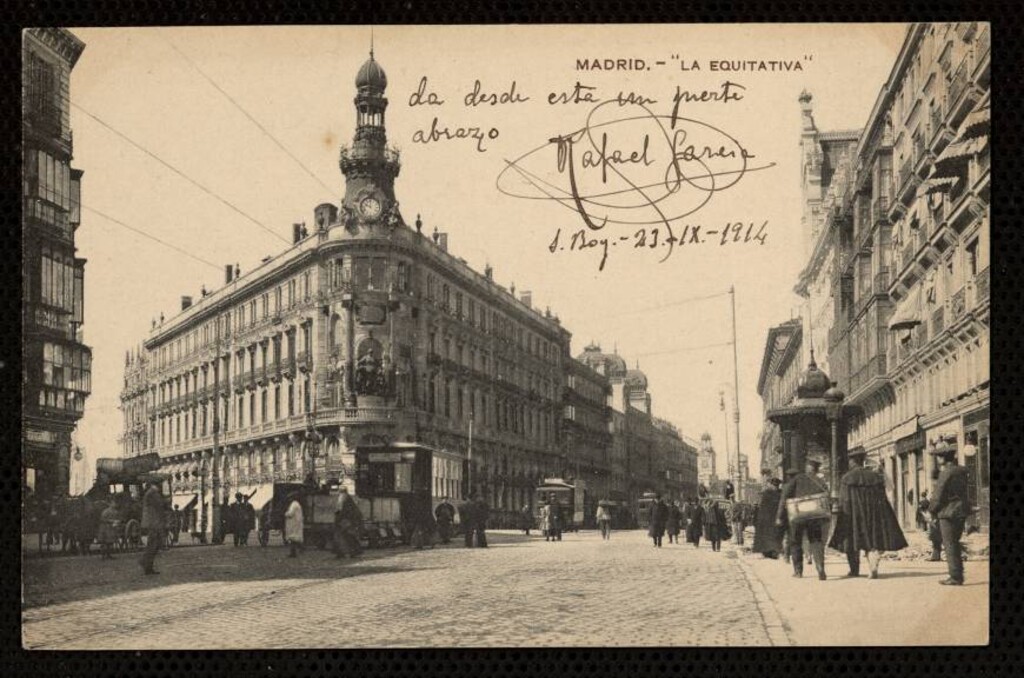 MADRID. - "LA EQUITATIVA"
da desde esta un fuerte
abrazo
Rafael Garcia
S. Boy. - 23. - IX. - 1914